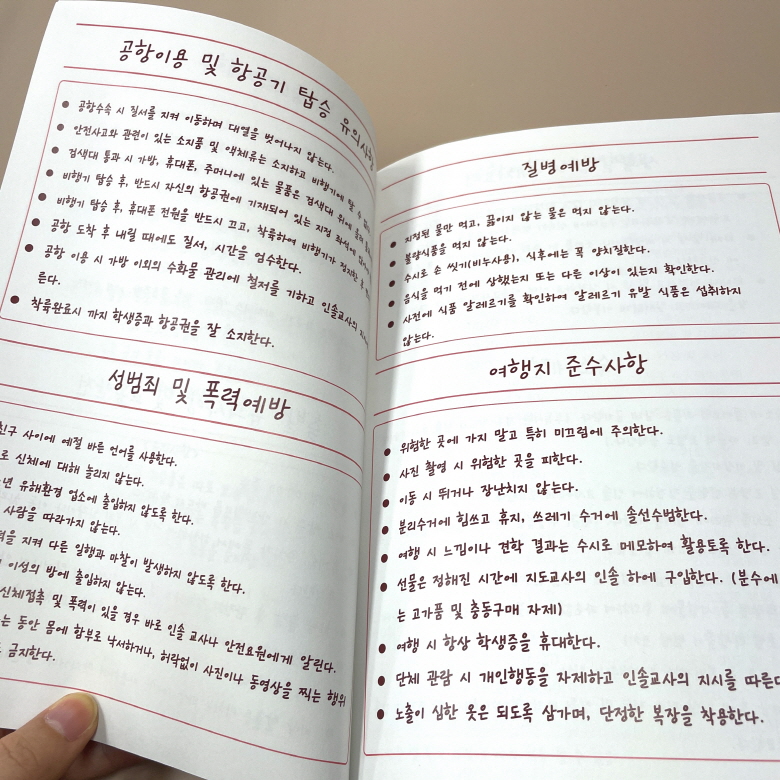 공항이용 및 항공기 탑승 유의사항
공항수속 시 질서를 지켜 이동하며 대열을 벗어나지 않는다.
안전사고와 관련이 있는 소지품 및 액체류는 소지하고 비행기에 탈 수 없
검색대 통과 시 가방, 휴대폰, 주머니에 있는 물품은 검색대 위에 올려
비행기 탑승 후, 반드시 자신의 항공권에 기재되어 있는 지정 좌석에
비행기 탑승 후, 휴대폰 전원을 반드시 끄고, 착륙하여 비행기가 정지한 후
공항 도착 후 내릴 때에도 질서, 시간을 엄수한다.
공항 이용 시 가방 이외의 수화물 관리에 철저를 기하고 인솔교사의
른다.
착륙완료시 까지 학생증과 항공권을 잘 소지한다.
성범죄 및 폭력예방
친구 사이에 예절 바른 언어를 사용한다.
로 신체에 대해 놀리지 않는다.
년 유해환경 업소에 출입하지 않도록 한다.
사람을 따라가지 않는다.
을 지켜 다른 일행과 마찰이 발생하지 않도록 한다.
이성의 방에 출입하지 않는다.
신체접촉 및 폭력이 있을 경우 바로 인솔 교사나 안전요원에게 알린다.
는 동안 몸에 함부로 낙서하거나, 허락없이 사진이나 동영상을 찍는 행위
금지한다.
질병예방
지정된 물만 먹고, 끓이지 않는 물은 먹지 않는다.
불량식품을 먹지 않는다.
수시로 손 씻기(비누사용), 식후에는 꼭 양치질한다.
음식을 먹기 전에 상했는지 또는 다른 이상이 있는지 확인한다.
사전에 식품 알레르기를 확인하여 알레르기 유발 식품은 섭취하지
않는다.
여행지 준수사항
위험한 곳에 가지 말고 특히 미끄럼에 주의한다.
사진 촬영 시 위험한 곳을 피한다.
이동 시 뛰거나 장난치지 않는다.
분리수거에 힘쓰고 휴지, 쓰레기 수거에 솔선수범한다.
여행 시 느낌이나 견학 결과는 수시로 메모하여 활용토록 한다.
선물은 정해진 시간에 지도교사의 인솔 하에 구입한다. (분수에
는 고가품 및 충동구매 자제)
여행 시 항상 학생증을 휴대한다.
단체 관람 시 개인행동을 자제하고 인솔교사의 지시를 따른다
노출이 심한 옷은 되도록 삼가며, 단정한 복장을 착용한다.